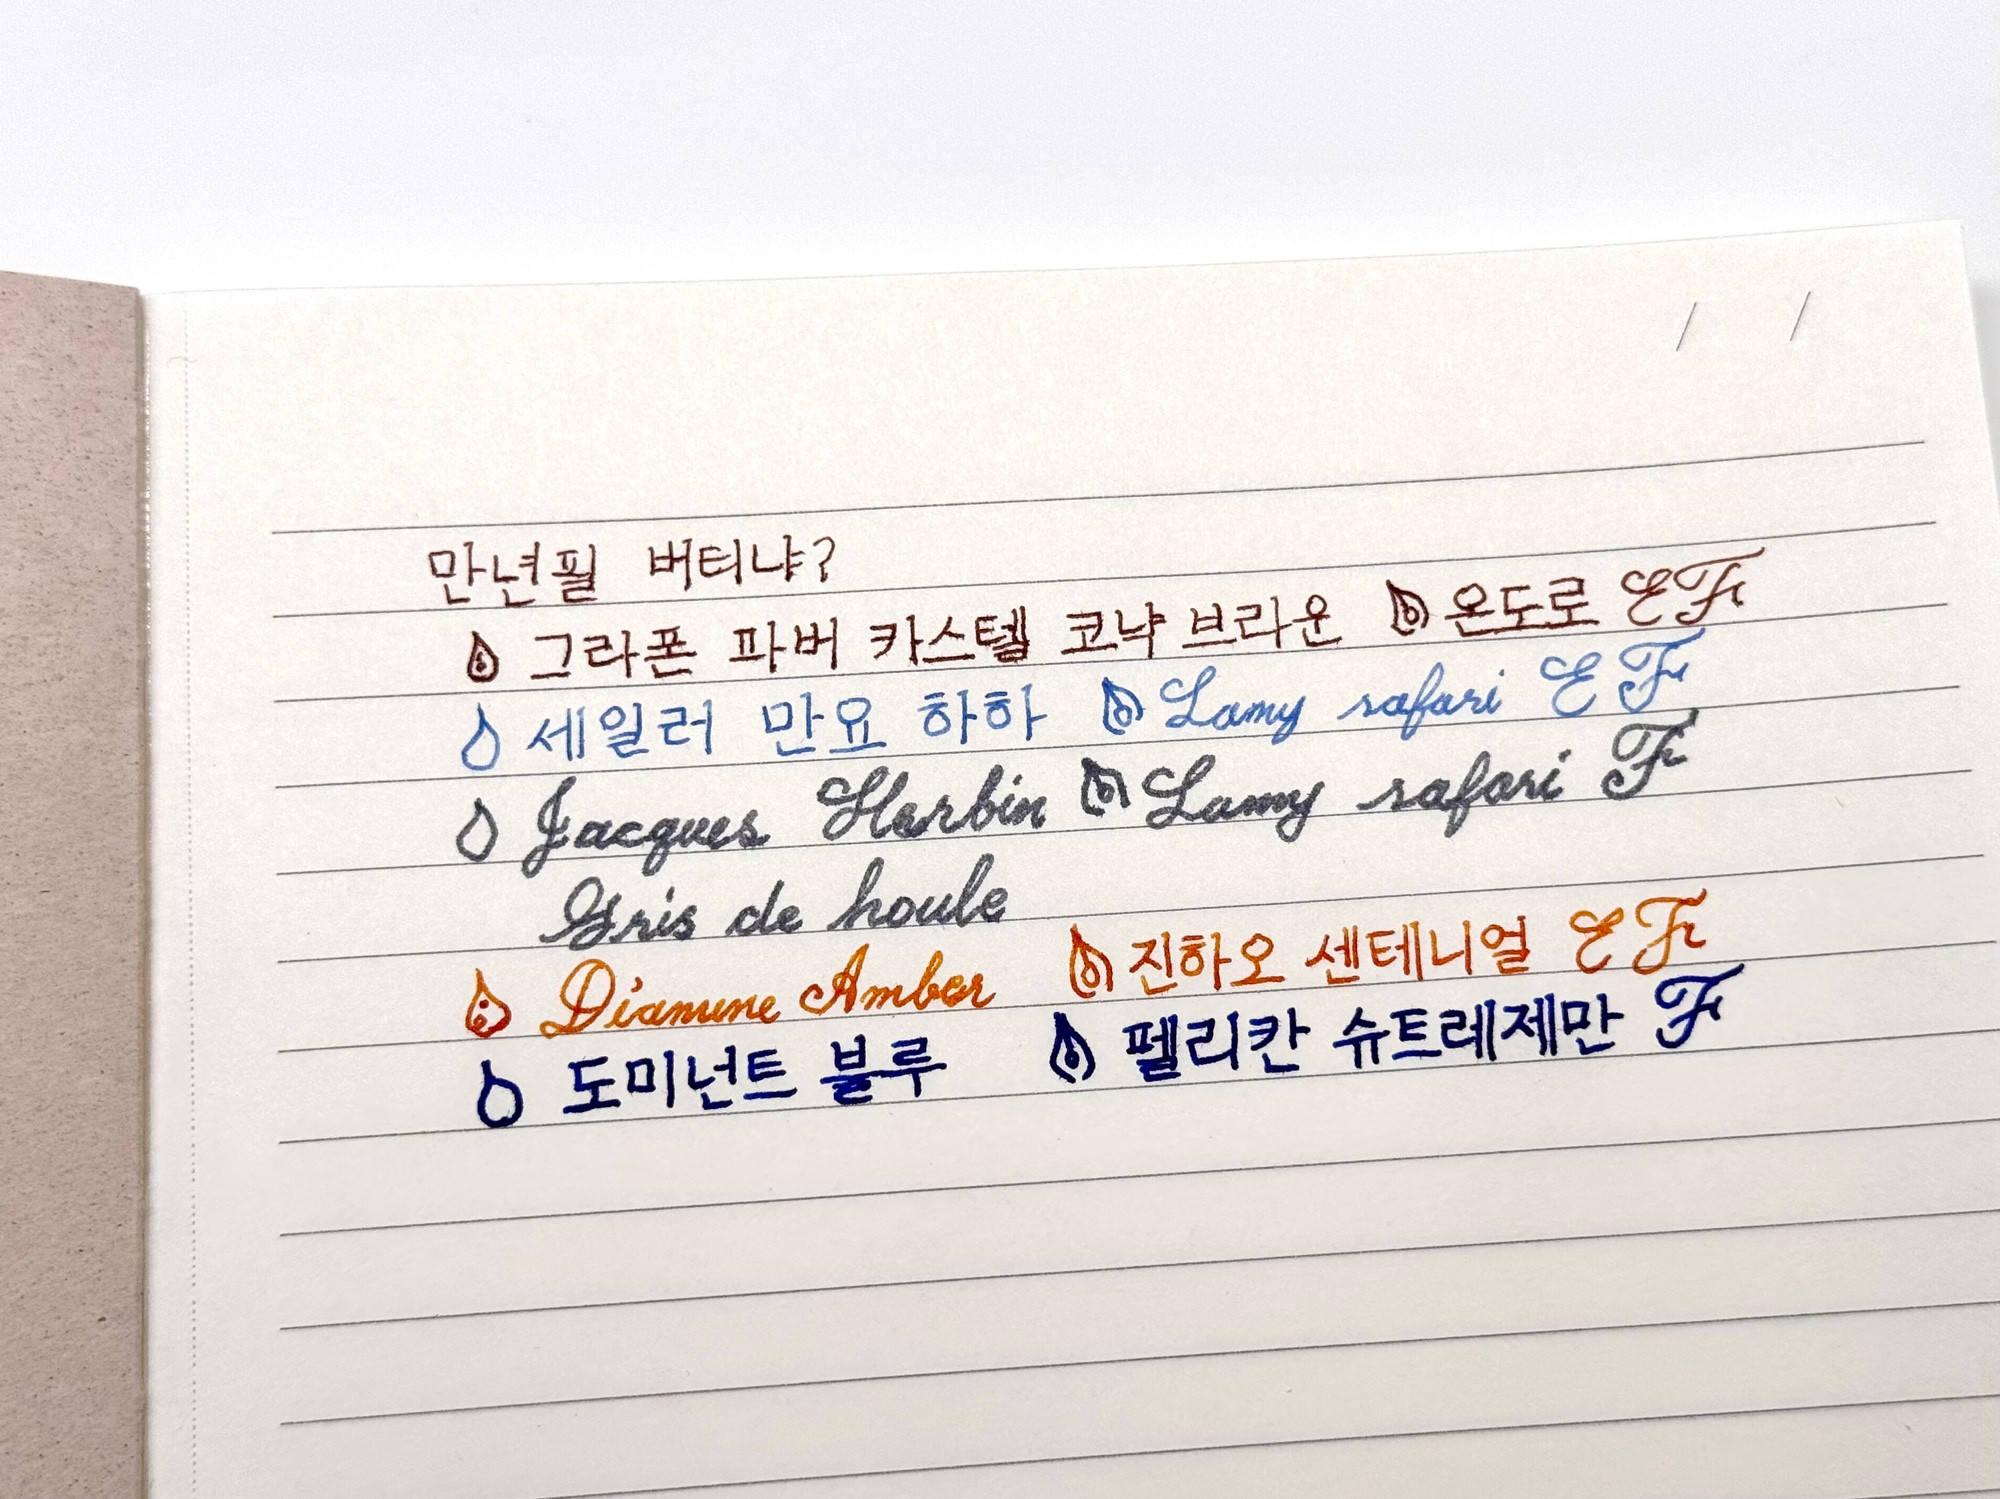 / /
만년필 버티냐?
그라폰 파버 카스텔 코냑 브라운 온도로 EF
세일러 만요 하하 Lamy safari EF
Jacques Herbin Lamy safari F
Gris de houle
Diamine Amber 진하오 센테니얼 EF
도미넌트 블루 펠리칸 슈트레제만 F